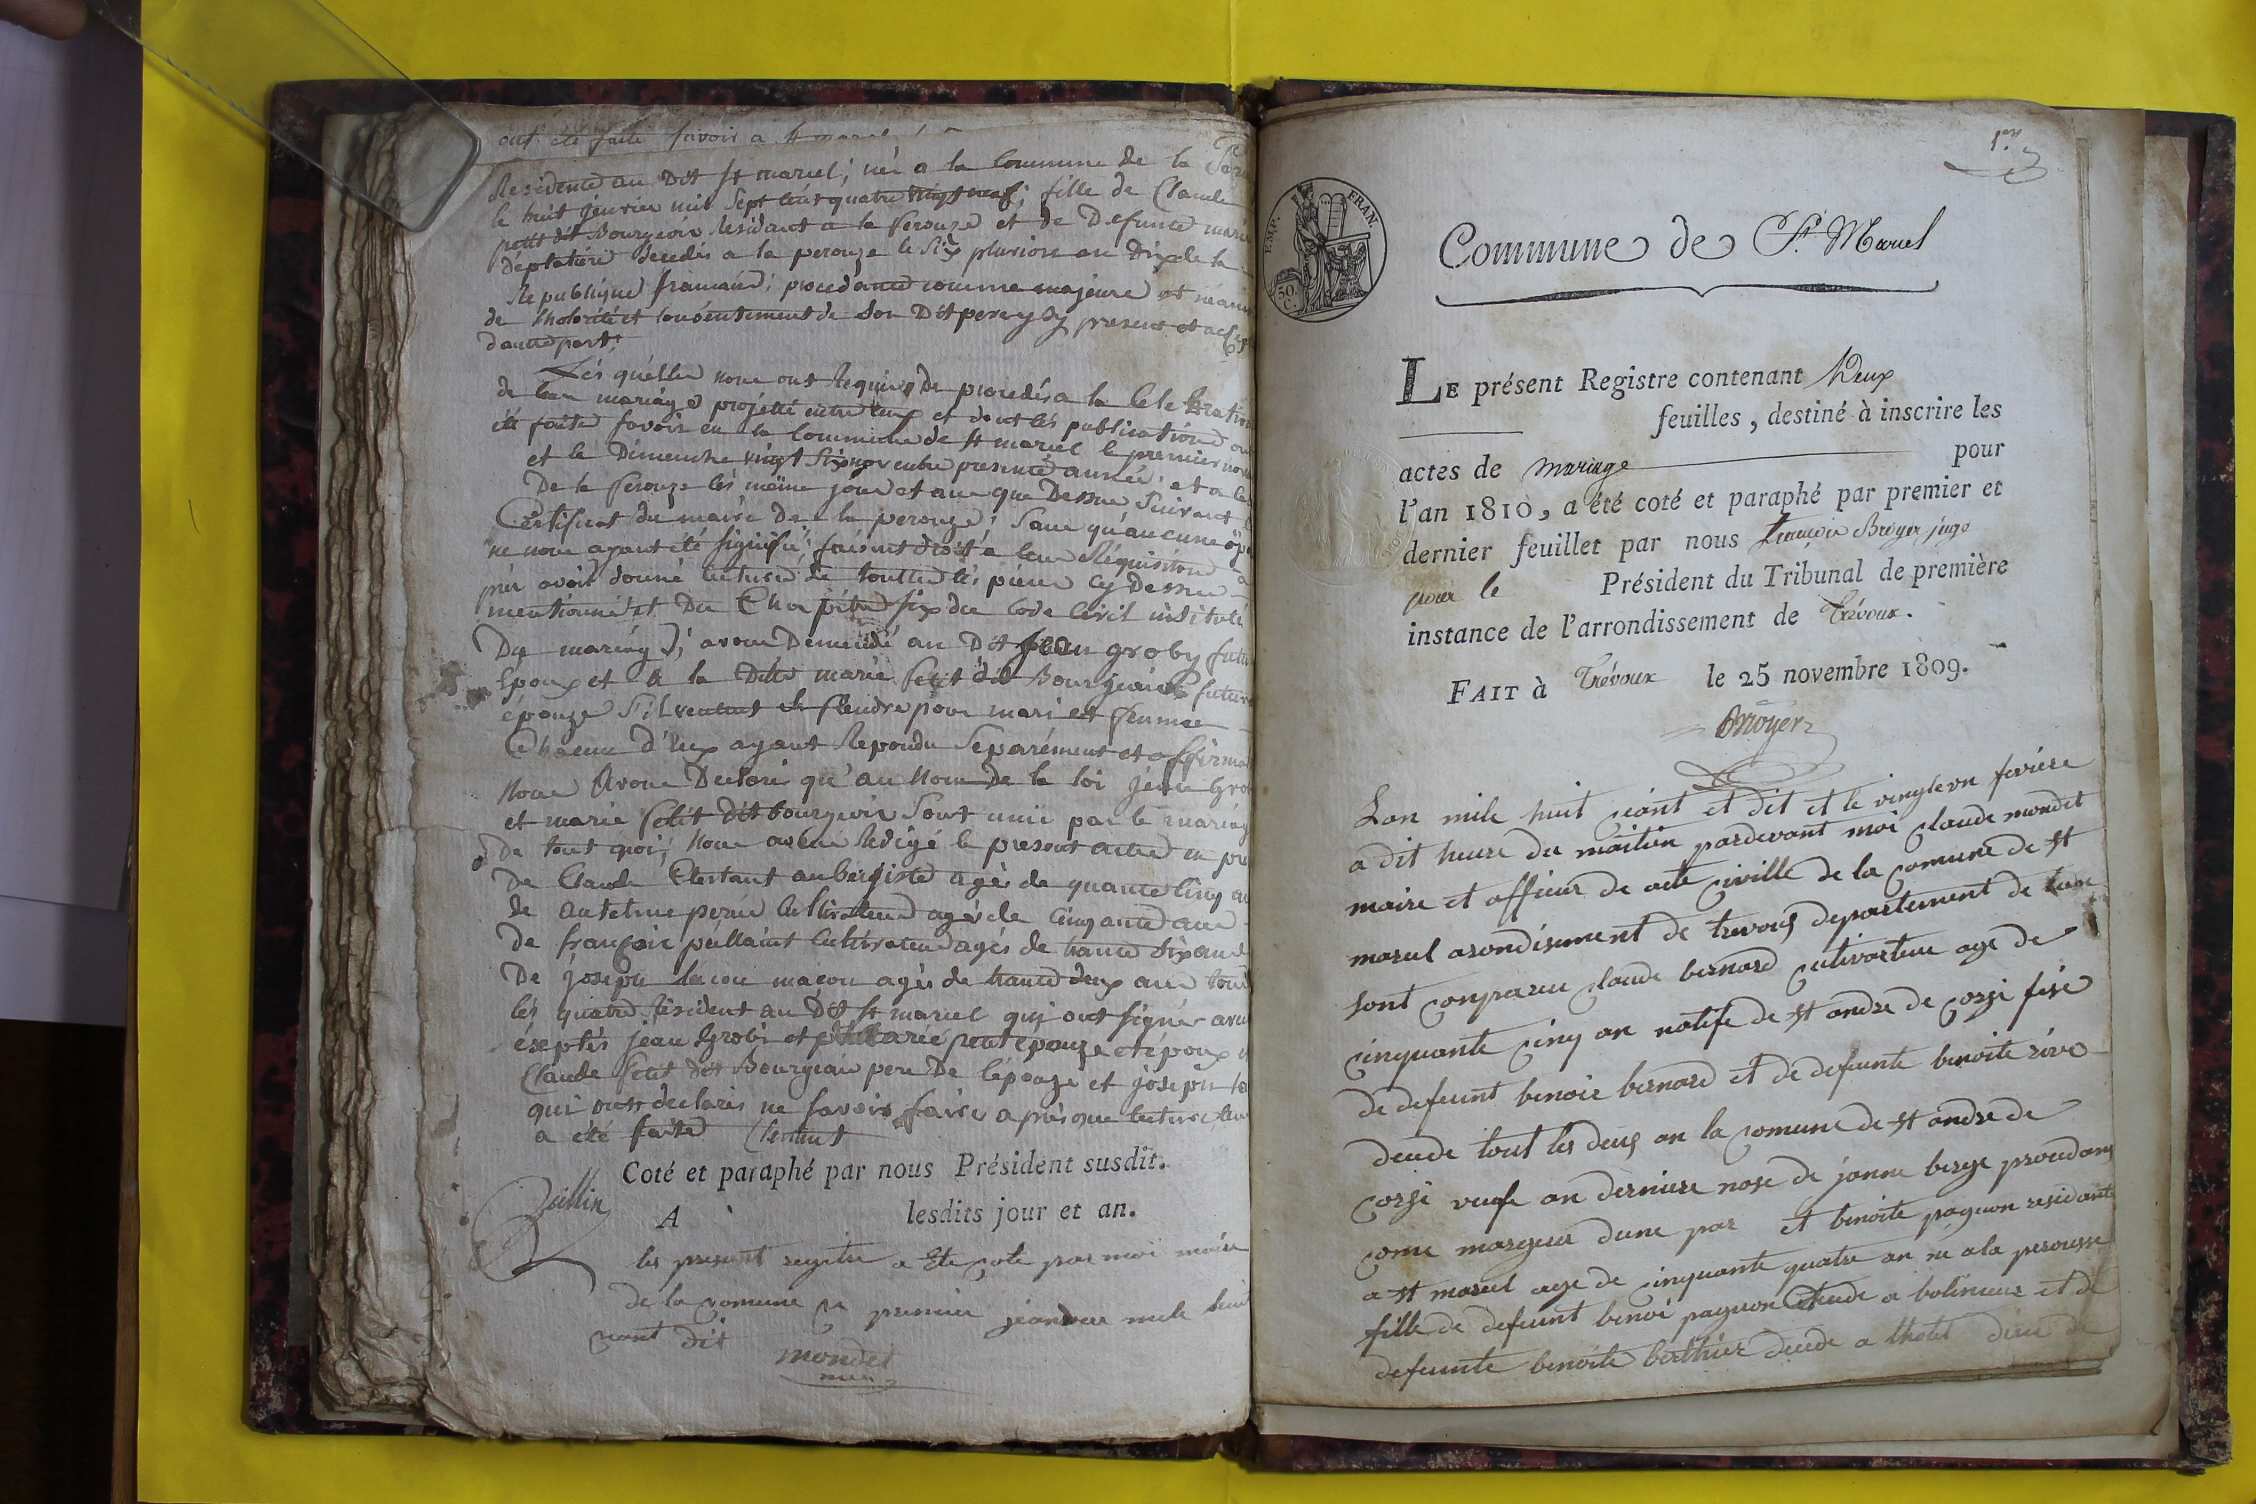 ont été faite savoir a st marcel
Residente au Dit st marcel; née a la Commune de la
le huit jenvier mil sept cent quatre vingt neuf; fille de Claude
petit dit Bourgeois Residant a la perouze et de Defunte marie
décédés a la perouze le six pluviose an Dix de la
Republique francaise; procedante comme majeure et
de Lhotorité et consentement de son Dit pere y present et
dautre part;
Les quelles nous ont Requis de procedés a la Celebration
de leur mariage projetté entre eux et dont les publications
été faite savoir en la Commune de st marcel le premier
et le Dimenche vingt six novembre presente année; et a
De la perouze les même jour et an que Dessus suivant
Certificat du maire De la perouze; sans qu'aucune
ne nous ayant été signifié; faisant droit a leur Réquisitions
avoir donné lecture de toutte les pieces cy Dessus
mentionnées et Du Chapitre six du Code Civil intitulé
Du mariage; avons Demendé au Dit jean groby futur
Epoux et a la Dette marie petit dit Bourgeois future
épouze s'il veulent se prendre pour mari et femme
Chacun d'Eux ayant Repondu separément et
Nous Avons Declarés qu'au Nom De la loi jean
et marie petit dit bourgeois sont unis par le mariage
De tout quoi; Nous avons Redigé le present acte en
De Claude aubergiste agés de quarante cinq
de antelme Cultivateur agés de cinquante ans
De françois Cultivateur agés de trante six ans
De joseph macon agés de trante deux ans tous
lés quatre Resident au Dit st marcel qui ont signés
éxeptés jean Grobi et marie petit epouze et époux
Claude petit dit Bourgeois pere De l'épouze et joseph
qui ont declarés ne savoir faire apres que lecture
a été faite
Coté et paraphé par nous Président susdit.
A lesdits jour et an.
les present regitre a Ete Cote par moi maire
de la comune ce premier jeanvier mile
ceant dit
mondet
1.er
EMP. FRAN.
50. C.
Commune de St. Marcel
LE présent Registre contenant Deux
feuilles, destiné à inscrire les
actes de mariage pour
l'an 1810, a été coté et paraphé par premier et
dernier feuillet par nous françois Broyer juge
pour le Président du Tribunal de première
instance de l'arrondissement de Trévoux.
FAIT à Trévoux le 25 novembre 1809.
Broyer
Lan mile huit ceant et dit et le vingtevn fevriere
a dit heure du maitin pardevant moi claude mondet
maire et officier de acte civille de la comune de st
marcel arondisement de trevous departement de lain
sont conpareu claude bernard cultivarteur age de
cinquante cinq an natife de st andre de corsi fise
de defeunt benoie bernard et de defeunte benoite
decede tout les deus an la comune de st andre de
corsi veufe an derniere nose de janne berge prosedans
come margeur dune par et benoite pagnon residante
a st marcel age de cinquante quatre an né a la perousse
fille de defeunt benoi pagnon decede a bolineux et de
defeunte benoite berthier decede a lhotel dieu de